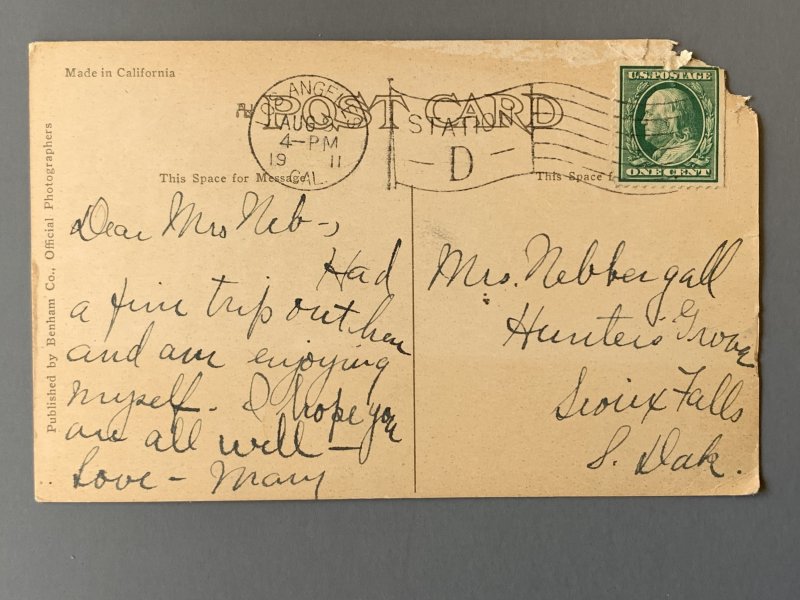 Made in California
POST CARD
LOS ANGELES
AUG 9
4-PM
19 11
CAL.
STATION
D
U.S. POSTAGE
ONE CENT
This Space for Message
This Space f
Published by Benham Co., Official Photographers
Dear Mrs Neb-,
Had
a fine trip out here
and am enjoying
myself. I hope you
are all well -
Love - Mary
Mrs. Nebbergall
Hunters Grove
Sioux Falls
S. Dak.